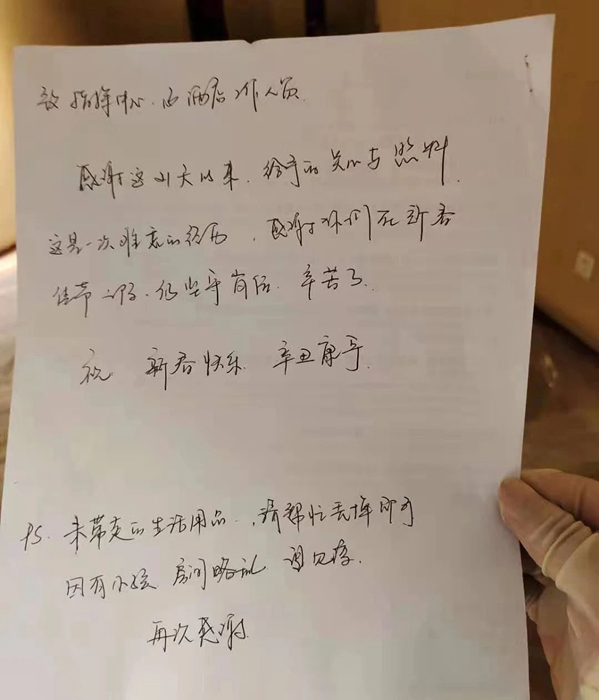 致指挥中心、西酒店工作人员
感谢这21天以来,给予的关心与照料
这是一次难忘的经历,感谢你们在新春
佳节之际,仍坚守岗位,辛苦了
祝 新春快乐 辛丑康宁
PS. 未带走的生活用品,请帮忙丢掉即可
因有小孩 房间略乱 请见谅
再次感谢